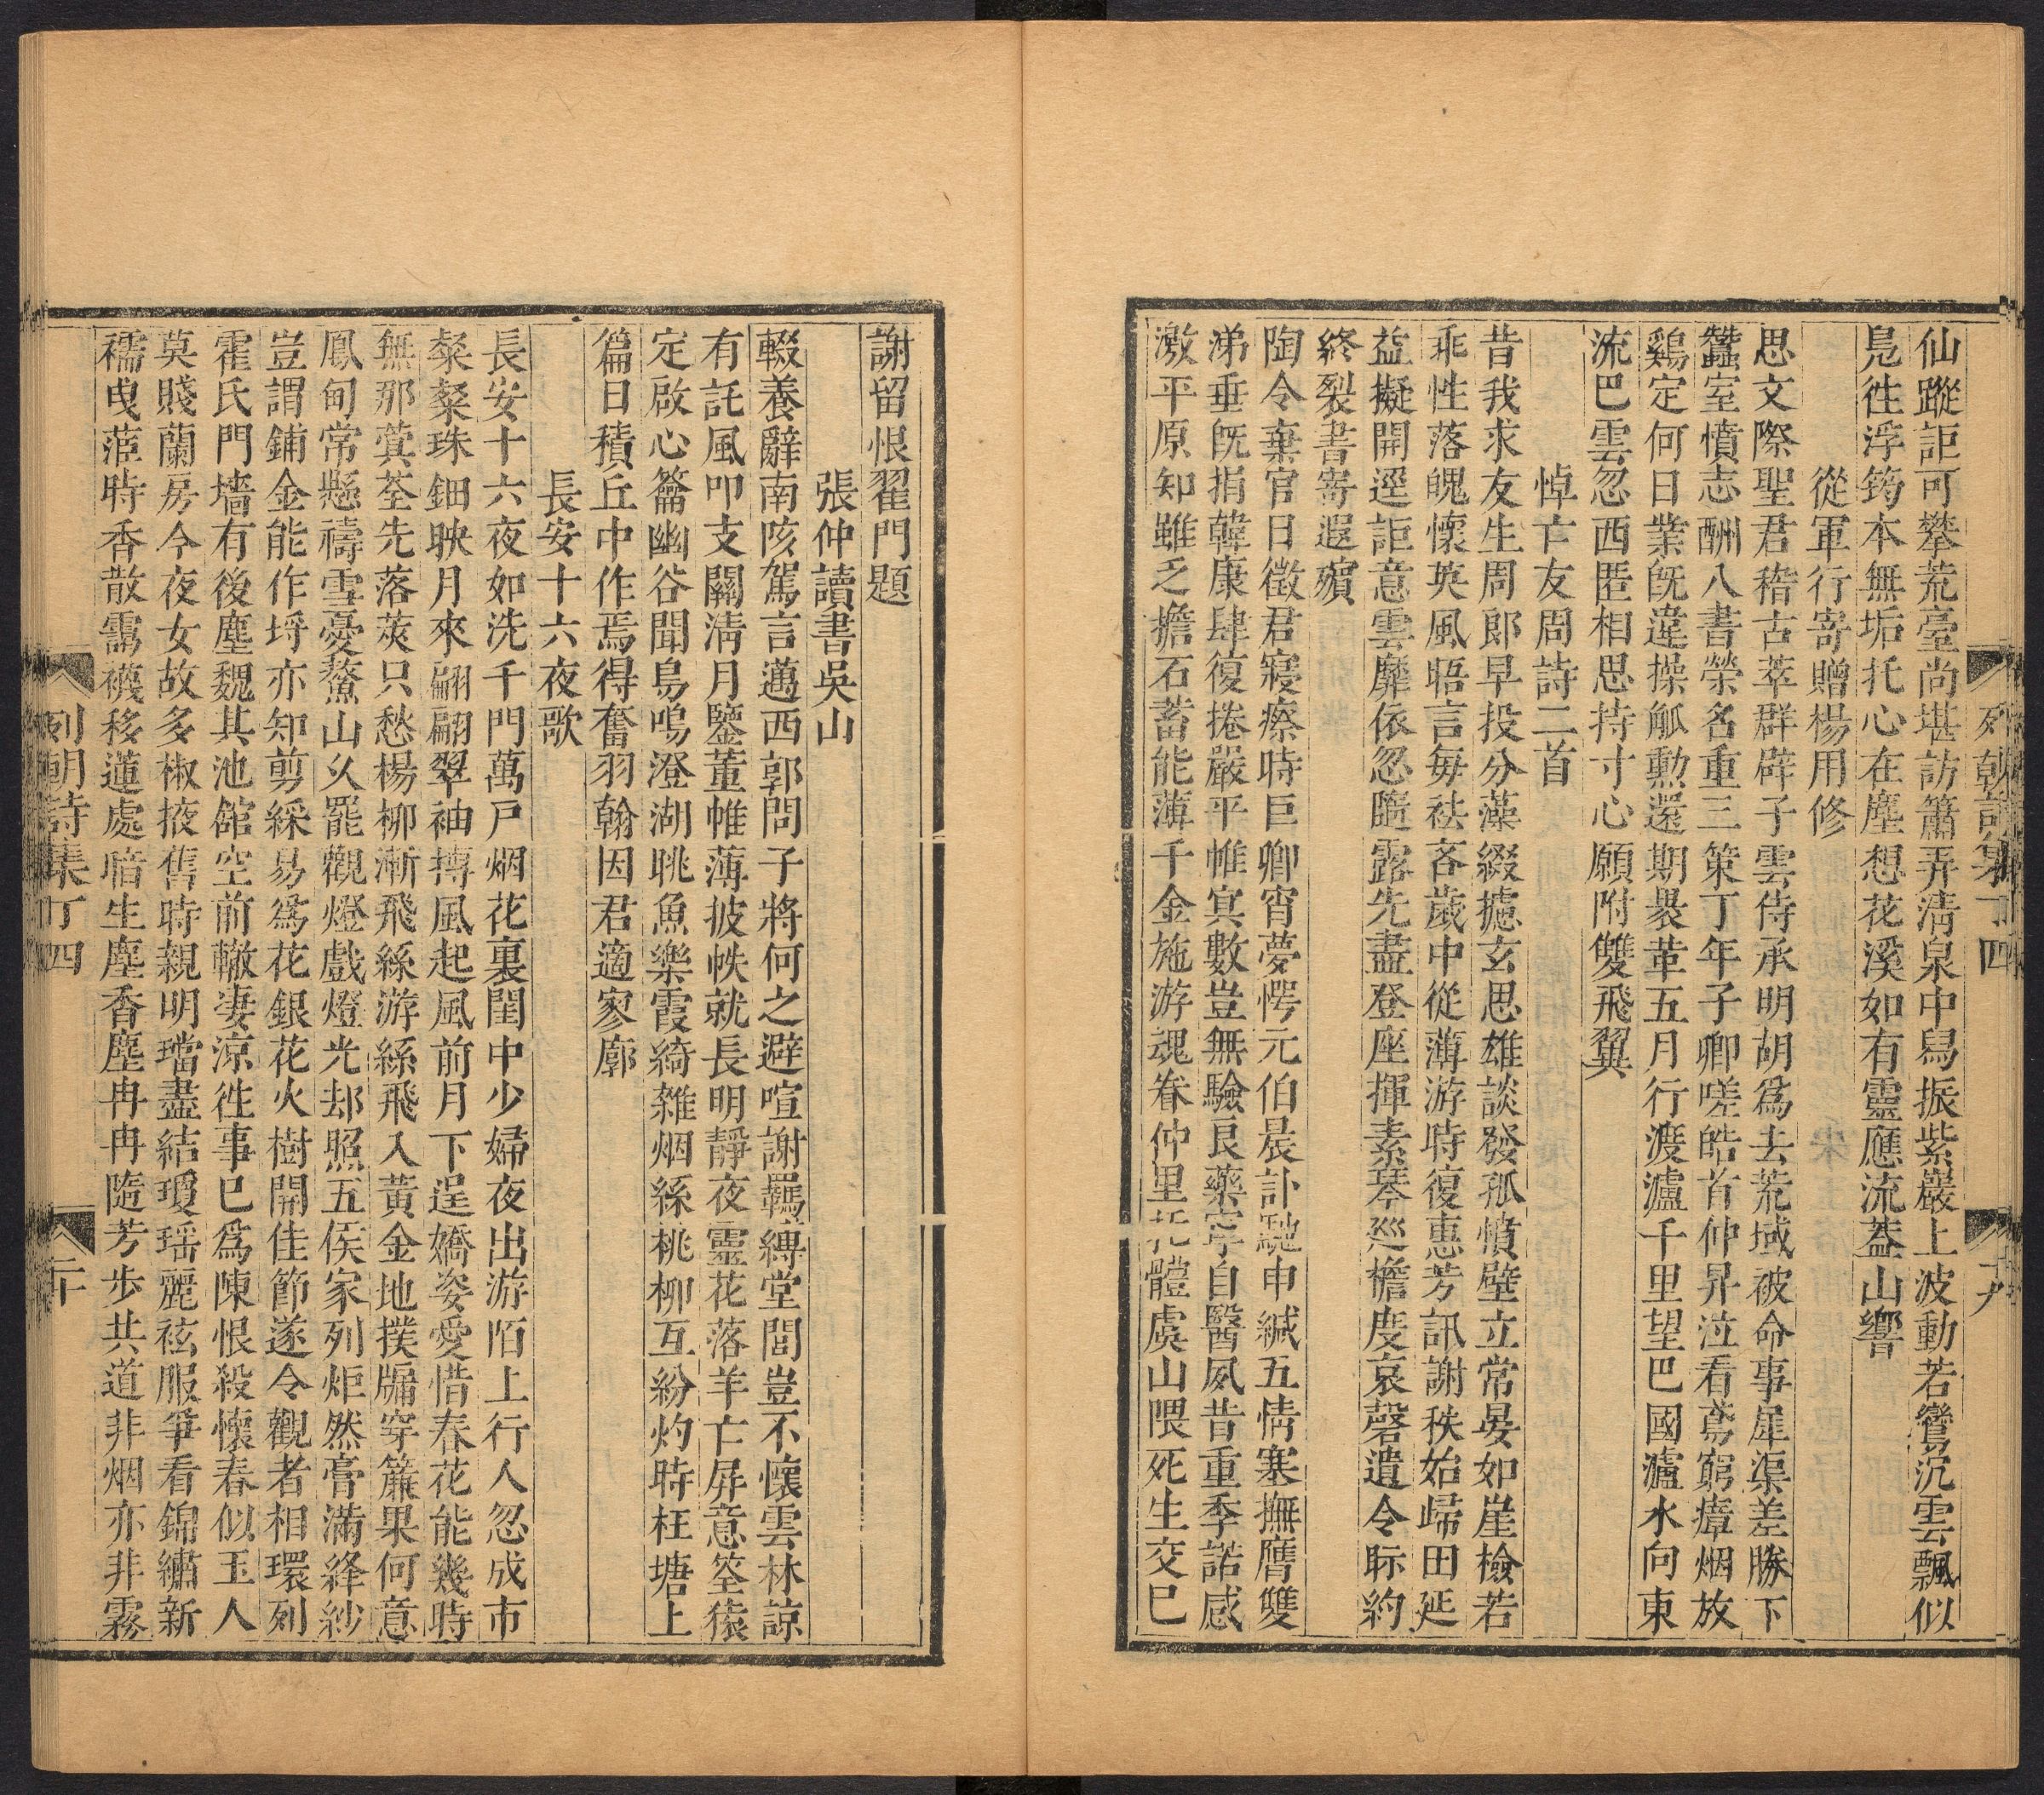 列朝詩集丁四
十九
仙蹤詎可攀荒臺尚堪訪簫弄清泉中舄振紫巖上波動若鸞沉雲飄似
鳧徃浮筠本無垢托心在塵想花溪如有靈應流蓋山響
從軍行寄贈楊用修
思文際聖君稽古萃群辟子雲侍承明胡爲去荒域被命事犀渠差勝下
蠶室憤志酬八書榮名重三策丁年子卿嗟皓首仲昇泣看鳶窮瘴烟放
鷄定何日業旣違操觚勲還期褁革五月行渡瀘千里望巴國瀘水向東
流巴雲忽西匿相思持寸心願附雙飛翼
悼亡友周詩二首
昔我求友生周郎早投分藻綴攄玄思雄談發孤憤壁立常晏如崖檢若
乖性落魄懷英風晤言每祛吝歲中從薄游時復惠芳訊謝秩始歸田延
益擬開逕詎意雲靡依忽隨露先盡登座揮素琴廵檐度哀磬遺令眎約
終裂書寄遐殯
陶令棄官日徵君寢瘵時巨卿宵夢愕元伯晨訃馳申緘五情塞撫膺雙
涕垂旣捐韓康肆復捲嚴平帷冥數豈無驗良藥寜自醫夙昔重季諾感
激平原知雖乏擔石蓄能薄千金施游魂眷仲里托體虞山隈死生交已
謝留恨翟門題
張仲讀書吳山
輟養辭南陔駕言邁西郭問子將何之避喧謝羈縛堂閭豈不懷雲林諒
有託風叩支關淸月鑒董帷薄披帙就長明靜夜靈花落羊亡屏意筌猿
定啟心籥幽谷聞鳥鳴澄湖眺魚樂霞綺雜烟絲桃柳互紛灼時枉塘上
篇日積丘中作焉得奮羽翰因君適寥廓
長安十六夜歌
長安十六夜如洗千門萬戸烟花裏閨中少婦夜出游陌上行人忽成市
粲粲珠鈿映月來翩翩翠袖摶風起風前月下逞嬌姿愛惜春花能幾時
無那蓂荃先落莢只愁楊柳漸飛絲游絲飛入黃金地撲牖穿簾果何意
鳳甸常懸禱雪憂鰲山久罷觀燈戲燈光却照五侯家列炬然膏滿絳紗
豈謂鋪金能作埒亦知剪綵易爲花銀花火樹開佳節遂令觀者相環列
霍氏門墻有後塵魏其池館空前轍凄涼徃事已爲陳恨殺懷春似玉人
莫賤蘭房今夜女故多椒掖舊時親明璫盡結瓊瑶麗袨服爭看錦繡新
襦曳蒞時香散靄襪移蓮處暗生塵香塵冉冉隨芳歩共道非烟亦非霧
列朝詩集丁四
二十